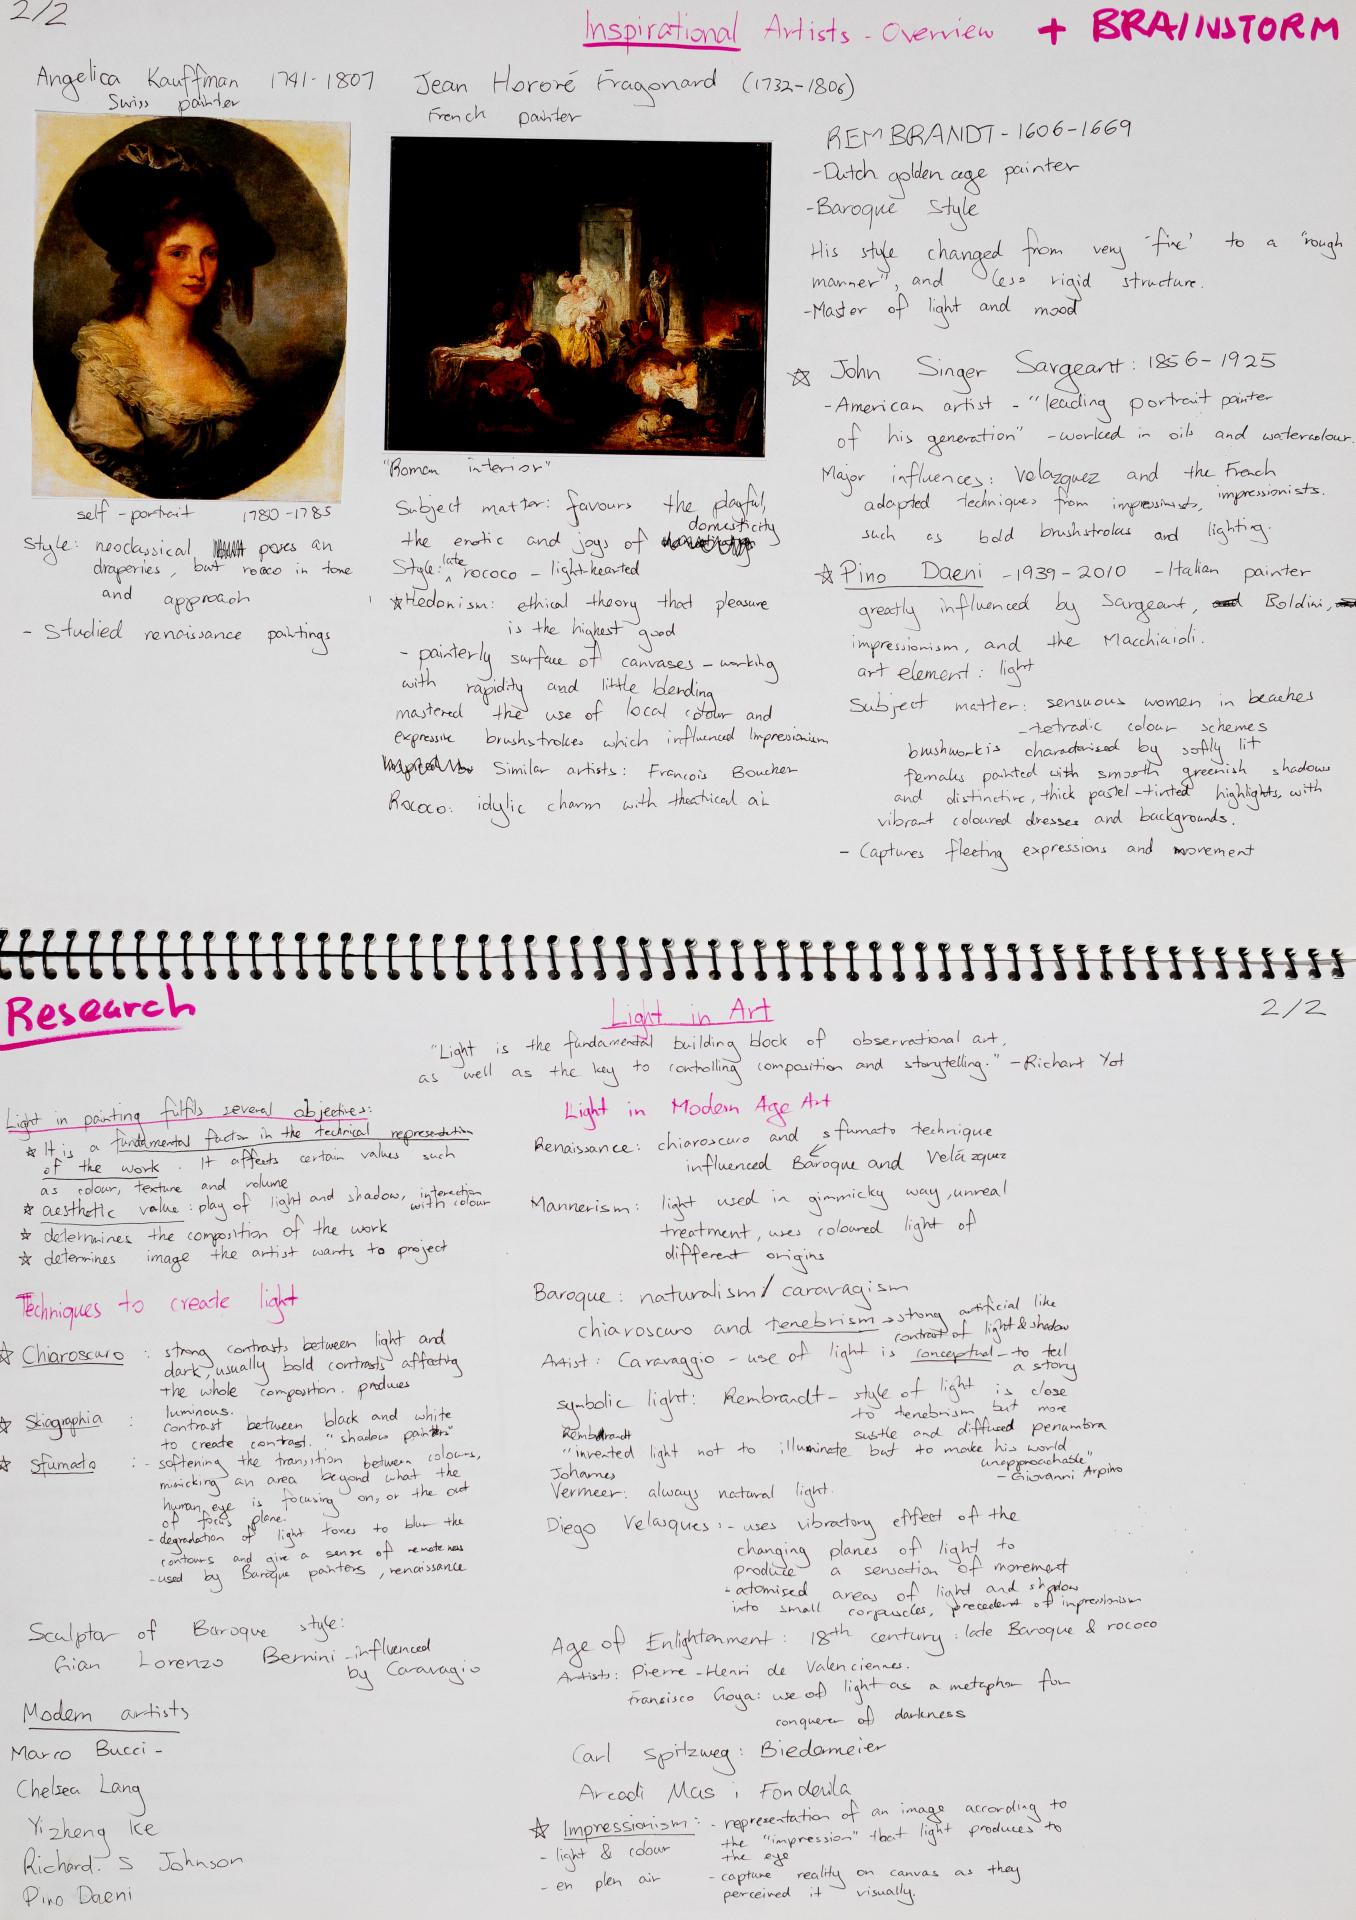 2/2
Inspirational Artists - Overview + BRAINSTORM
Angelica Kauffman 1741-1807
Swiss painter
self-portrait 1780-1785
Style: neoclassical poses an
draperies, but rococo in tone
and approach
- Studied renaissance paintings
Jean Hororé Fragonard (1732-1806)
French painter
"Roman interior"
Subject matter: favours the playful,
the erotic and joys of domesticity
Style: late rococo - light-hearted
☆Hedonism: ethical theory that pleasure
is the highest good
- painterly surface of canvases - working
with rapidity and little blending
mastered the use of local colour and
expressive brushstrokes which influenced Impressionism
Similar artists: Francois Boucher
Rococo: idylic charm with theatrical air
REMBRANDT - 1606-1669
-Dutch golden age painter
-Baroque style
His style changed from very 'fine' to a "rough
manner", and less rigid structure.
-Master of light and mood
☆ John Singer Sargeant: 1856-1925
-American artist - "leading portrait painter
of his generation" -worked in oils and watercolour.
Major influences: Velazquez and the French impressionists.
adapted techniques from impressionists,
such as bold brushstrokes and lighting.
☆ Pino Daeni - 1939-2010 - Italian painter
greatly influenced by Sargeant, Boldini,
impressionism, and the Macchiaioli.
art element: light
Subject matter: sensuous women in beaches
-tetradic colour schemes
brushwork is characterised by softly lit
females painted with smooth greenish shadows
and distinctive, thick pastel-tinted highlights, with
vibrant coloured dresses and backgrounds.
- Captures fleeting expressions and movement
Research
Light in Art
2/2
"Light is the fundamental building block of observational art,
as well as the key to controlling composition and storytelling." -Richart Yot
Light in painting fulfils several objectives:
☆ It is a fundamental factor in the technical representation
of the work. It affects certain values such
as colour, texture and volume
☆ aesthetic value: play of light and shadow, interaction with colour
☆ determines the composition of the work
☆ determines image the artist wants to project
Techniques to create light
☆ Chiaroscuro: strong contrasts between light and
dark, usually bold contrasts affecting
the whole composition. produces
luminous.
☆ Skiographia: contrast between black and white
to create contrast. "shadow painters"
☆ Sfumato: - softening the transition between colours,
mimicking an area beyond what the
human eye is focusing on, or the out
of focus plane.
- degradation of light tones to blur the
contours and give a sense of remoteness
- used by Baroque painters, renaissance
Sculptor of Baroque style:
Gian Lorenzo Bernini - influenced
by Caravagio
Modern artists
Marco Bucci -
Chelsea Lang
Yizheng Ke
Richard. S Johnson
Pino Daeni
Light in Modern Age Art
Renaissance: chiaroscuro and sfumato technique
influenced Baroque and Velázquez
Mannerism: light used in gimmicky way, unreal
treatment, uses coloured light of
different origins
Baroque: naturalism/caravagism
chiaroscuro and tenebrism → strong artificial like
contrast of light & shadow
Artist: Caravaggio - use of light is conceptual - to tell
a story
symbolic light: Rembrandt - style of light is close
to tenebrism but more
sustle and diffused penumbra
Rembrandt
"invented light not to illuminate but to make his world
unapproachable"
- Giovanni Arpino
Johannes
Vermeer: always natural light.
Diego Velasques: - uses vibratory effect of the
changing planes of light to
produce a sensation of movement
- atomised areas of light and shadow
into small corpuscles, precedent of impressionism
Age of Enlightenment: 18th century: late Baroque & rococo
Artists: Pierre-Henri de Valenciennes.
Fransisco Goya: use of light as a metaphor for
conquerer of darkness
Carl Spitzweg: Biedermeier
Arcadi Mas i Fondevila
☆ Impressionism: - representation of an image according to
the "impression" that light produces to
the eye
- light & colour
- en plen air
- capture reality on canvas as they
perceived it visually.